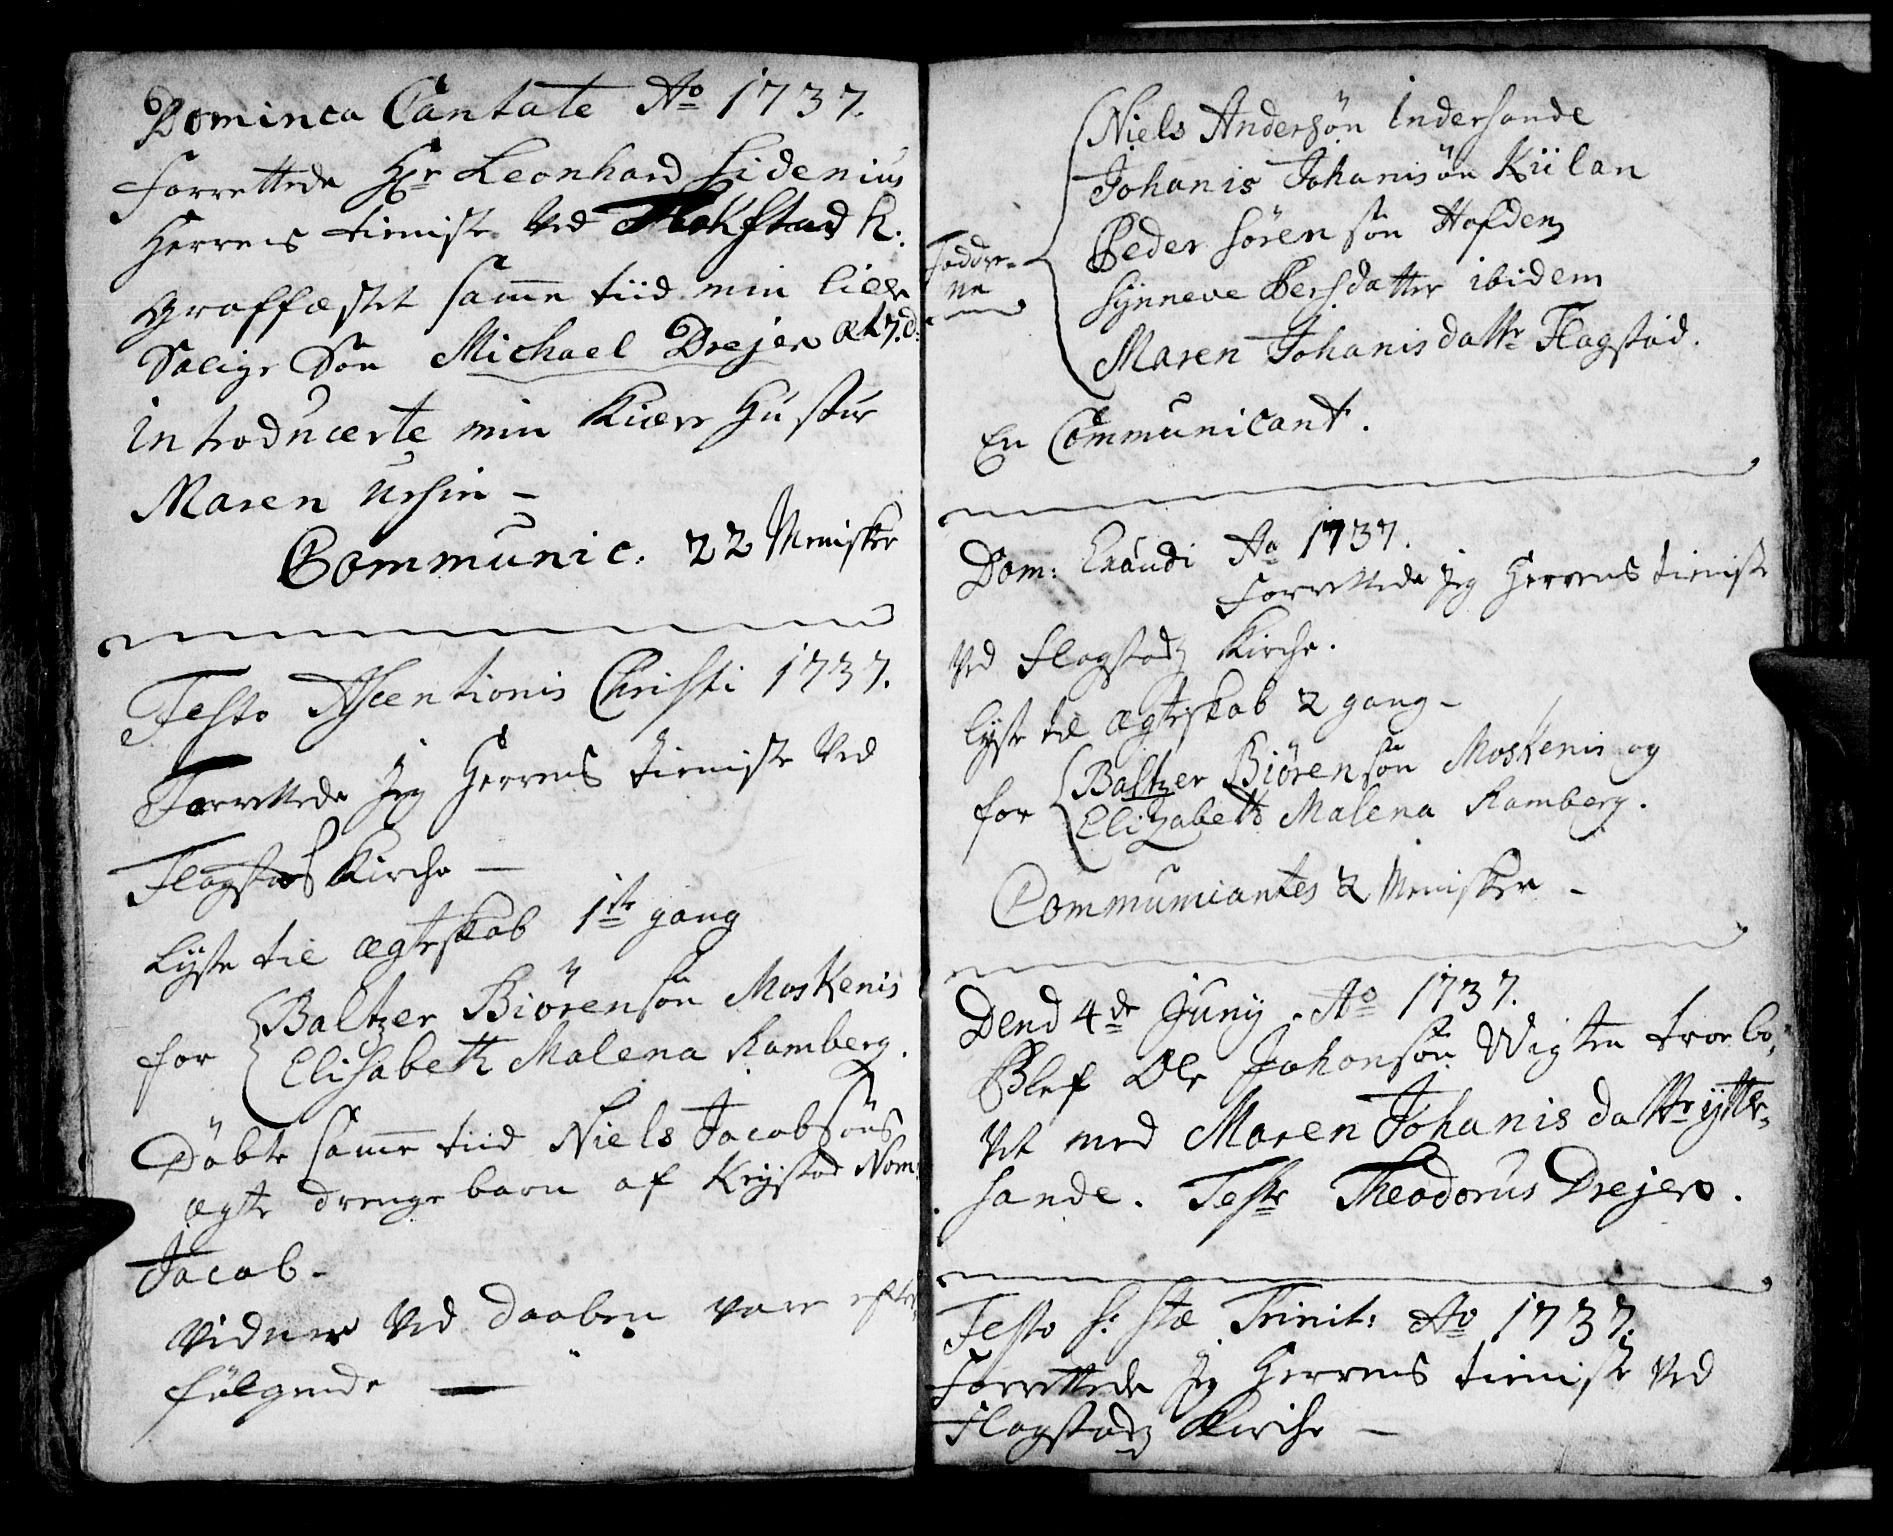 Dominca Cantate Ao 1737.
forrettede Hr Leonhard Sidenius
Herrens tieniste ved Flakstad K:
Graffæstet samme tiid min lille
Salige Søn Michael Drejer æt 7. d:
introducerte min Kiere Hustur
Maren Ursin –
Communic. 22 Menisker
Festo Ascentionis Christi 1737.
Forrettede jeg Herrens tieniste ved
Flagstad Kirche –
lyste til ægteskab 1ste gang
for Baltzer Biörensön Moskenis
Elisabeth Malena Ramberg.
Döbte samme tiid Niels Jacobsöns
ægte drengebarn af Krystad Nom:
Jacob –
Vidner ved Daaben vare efter
fölgende —
Niels Andersön Indersande
Johanis Johanisön Kiilan
Peder Sörensön Hofden
Fadder-
ne
Synneve Persdatter ibidem
Maren Johanisdattr Flagstad.
En Communicant.
Dom: Exaudi Ao 1737.
Forrettede jeg Herrens tieniste
ved Flagstadz Kirche.
lyste til ægteskab 2 gang –
for Baltzer Biörensön Moskenis og
Elizabeth Malena Ramberg.
Communicantes 2 Menisker –
Dend 4de Juny Ao 1737.
Blef Ole Johonsön Wigten troelo-
vet med Maren Johanisdattr ytter-
sande. Teste Theodorus Drejer.
Festo S: Stæ Trinit: Ao 1737.
Forrettede jeg Herrens tieniste ved
Flagstadz Kirche –